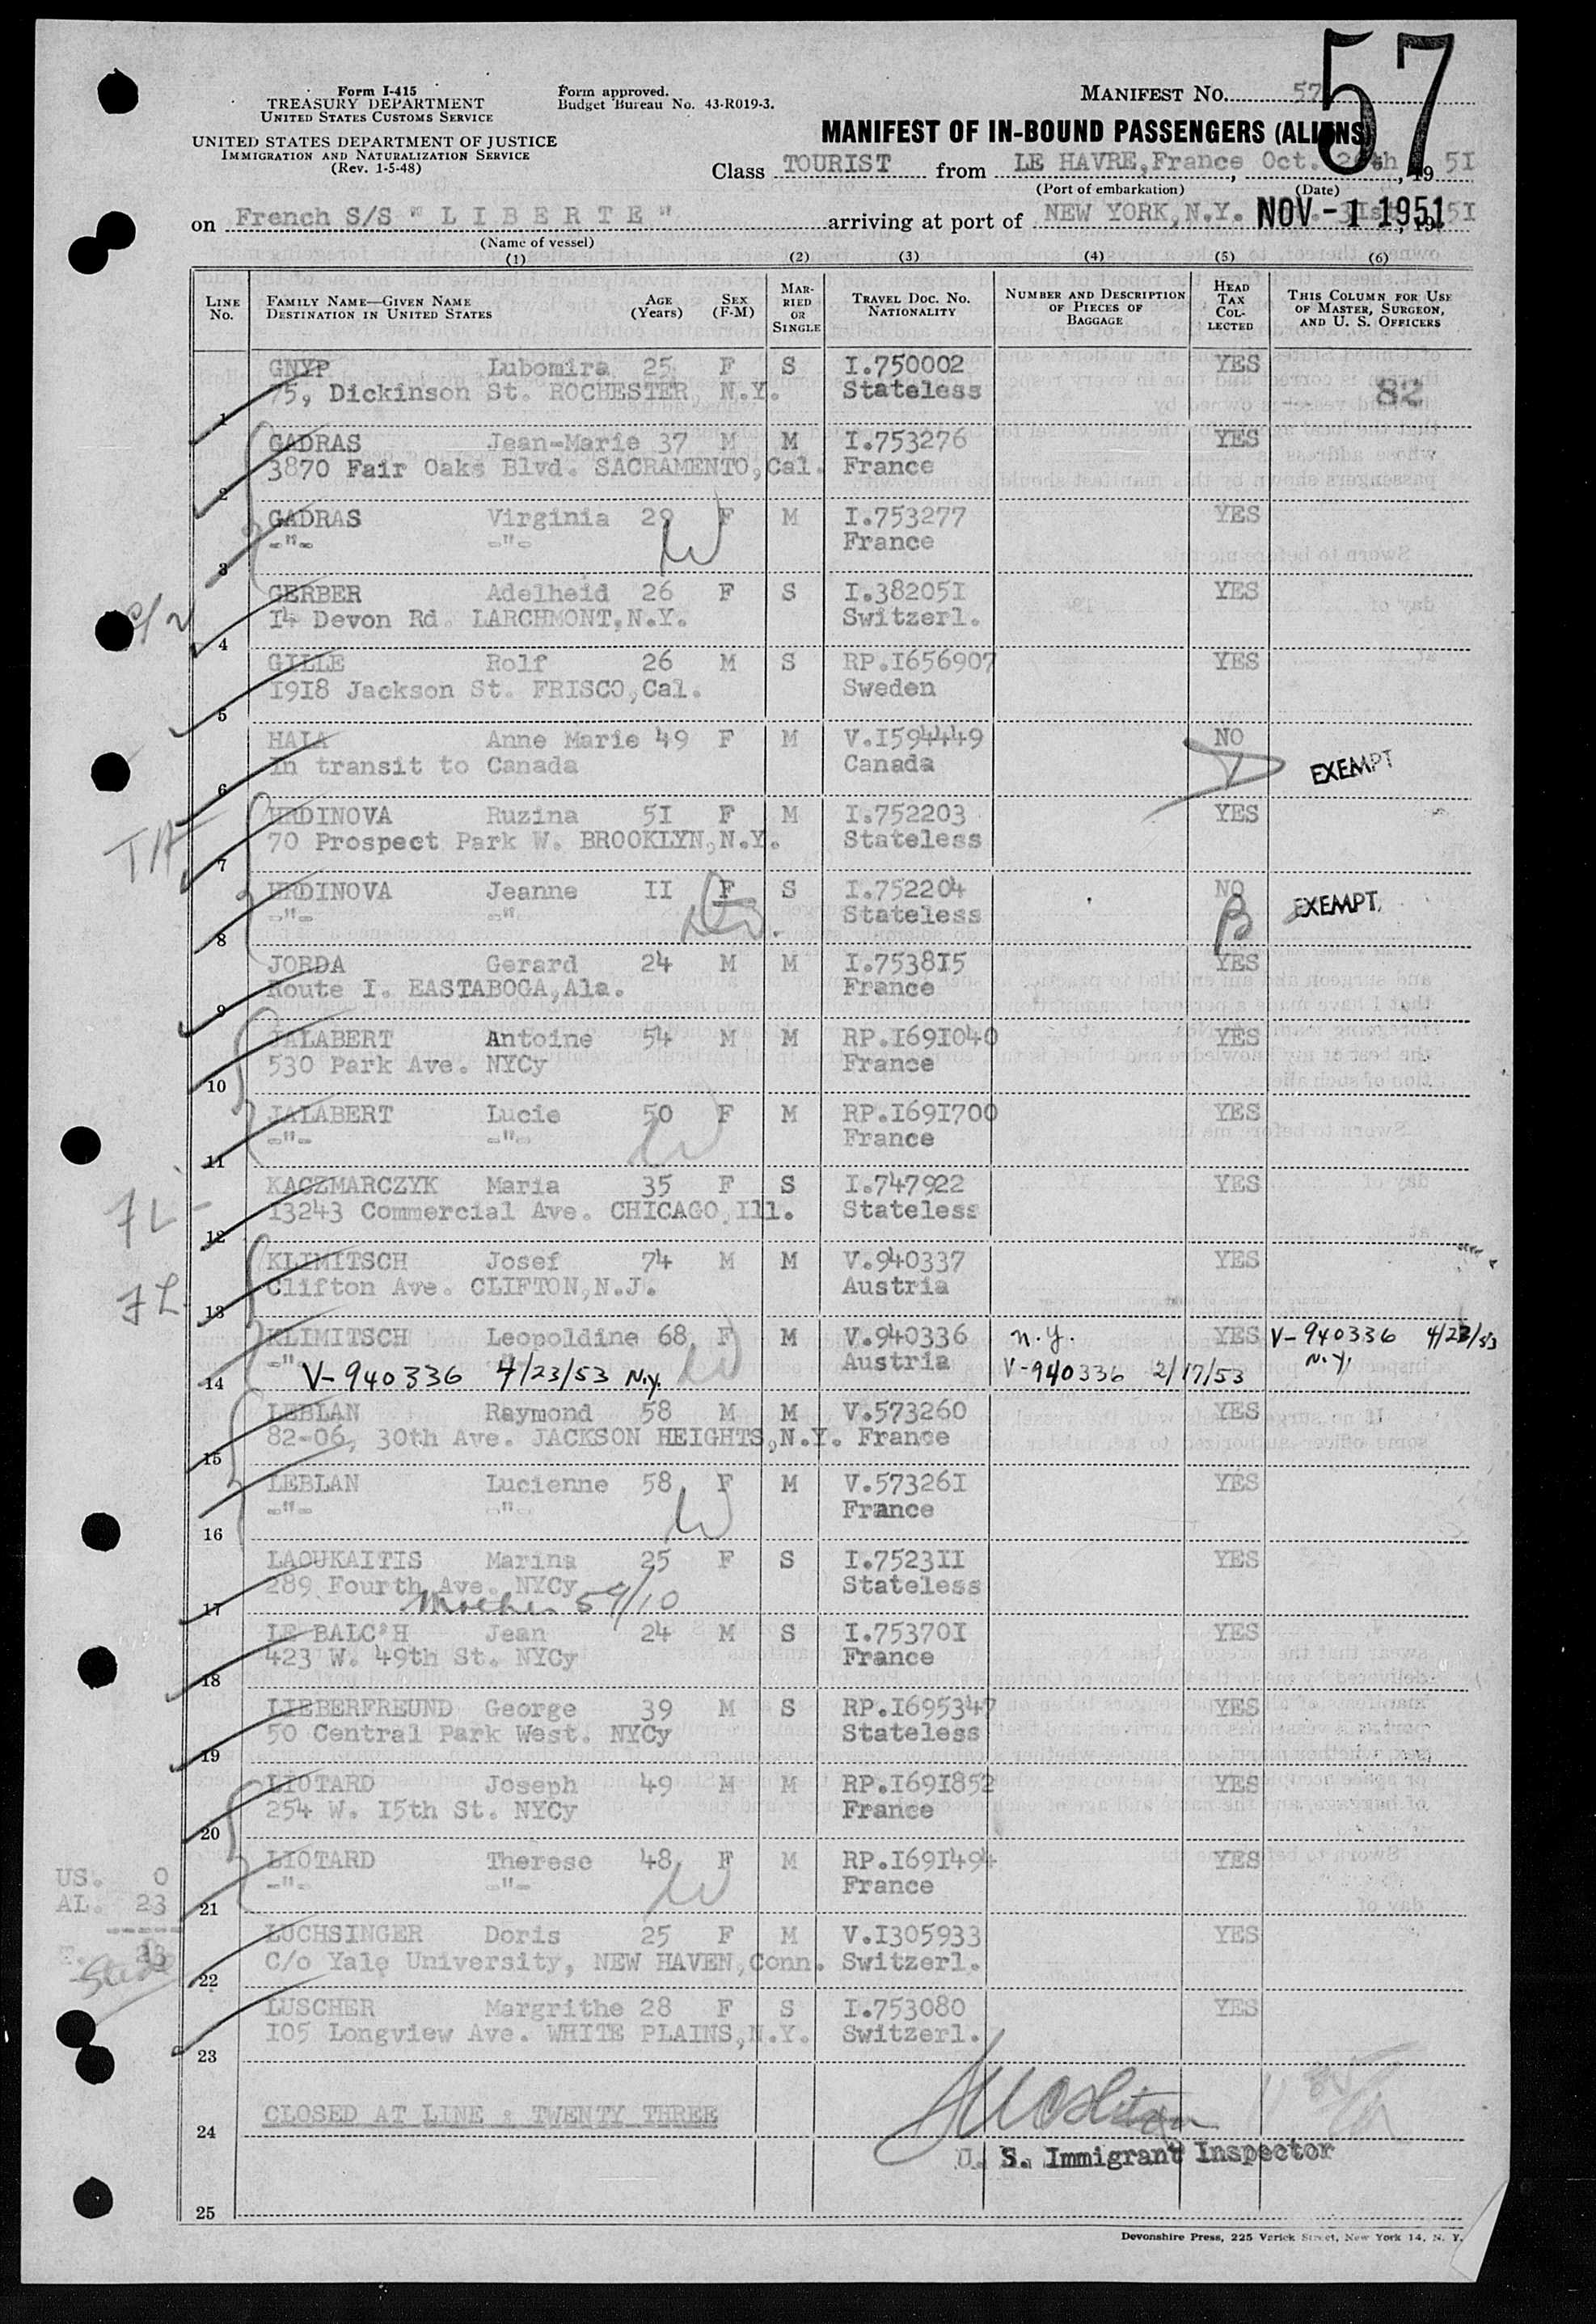 57
Form I-415
TREASURY DEPARTMENT
UNITED STATES CUSTOMS SERVICE
UNITED STATES DEPARTMENT OF JUSTICE
IMMIGRATION AND NATURALIZATION SERVICE
(Rev. 1-5-48)
Form approved.
Budget Bureau No. 43-R019-3.
MANIFEST NO. 57
MANIFEST OF IN-BOUND PASSENGERS (ALIENS)
Class TOURIST from LE HAVRE,France Oct. , 19 5I
(Port of embarkation) (Date)
on French S/S " L I B E R T E " arriving at port of NEW YORK,N.Y. NOV - 1 1951 , 19 5I
(Name of vessel)
(1) (2) (3) (4) (5) (6)
LINE No. FAMILY NAME—GIVEN NAME DESTINATION IN UNITED STATES AGE (Years) SEX (F-M) MARRIED OR SINGLE TRAVEL DOC. NO. NATIONALITY NUMBER AND DESCRIPTION OF PIECES OF BAGGAGE HEAD TAX COLLECTED THIS COLUMN FOR USE OF MASTER, SURGEON, AND U. S. OFFICERS
GNYP Lubomira 25 F S I.750002 YES
1 75, Dickinson St. ROCHESTER, N.Y. Stateless 82
GADRAS Jean-Marie 37 M M I.753276 YES
2 3870 Fair Oaks Blvd. SACRAMENTO,Cal. France
GADRAS Virginia 29 F M I.753277 YES
3 -"- -"- W France
GERBER Adelheid 26 F S I.38205I YES
4 I4 Devon Rd. LARCHMONT,N.Y. Switzerl.
GILLE Rolf 26 M S RP.I656907 YES
5 I9I8 Jackson St. FRISCO,Cal. Sweden
HAIA Anne Marie 49 F M V.I594449 NO
6 In transit to Canada Canada T EXEMPT
HRDINOVA Ruzina 5I F M I.752203 YES
7 70 Prospect Park W. BROOKLYN,N.Y. Stateless
HRDINOVA Jeanne II F S I.752204 NO
8 -"- -"- Stateless B EXEMPT
JORDA Gerard 24 M M I.7538I5 YES
9 Route I. EASTABOGA,Ala. France
JALABERT Antoine 54 M M RP.I69I040 YES
10 530 Park Ave. NYCy France
JALABERT Lucie 50 F M RP.I69I700 YES
11 -"- -"- W France
KACZMARCZYK Maria 35 F S I.747922 YES
12 I3243 Commercial Ave. CHICAGO,Ill. Stateless
KLIMITSCH Josef 74 M M V.940337 YES
13 Clifton Ave. CLIFTON,N.J. Austria
KLIMITSCH Leopoldine 68 F M V.940336 n.y. YES V-940336 4/23/53 N.Y.
14 -"- V-940336 4/23/53 N.y. W Austria V-940336 2/17/53
LEBLAN Raymond 58 M M V.573260 YES
15 82-06, 30th Ave. JACKSON HEIGHTS,N.Y. France
LEBLAN Lucienne 58 F M V.57326I YES
16 -"- -"- W France
LAOUKAITIS Marina 25 F S I.7523II YES
17 289 Fourth Ave. NYCy Stateless
Mother 59/10
LE BALC'H Jean 24 M S I.75370I YES
18 423 W. 49th St. NYCy France
LIEBERFREUND George 39 M S RP.I695347 YES
19 50 Central Park West. NYCy Stateless
LIOTARD Joseph 49 M M RP.I69I852 YES
20 254 W. I5th St. NYCy France
LIOTARD Therese 48 F M RP.I69I494 YES
21 -"- -"- W France
LUCHSINGER Doris 25 F M V.I305933 YES
22 C/o Yale University, NEW HAVEN,Conn. Switzerl.
LUSCHER Margrithe 28 F S I.753080 YES
23 I05 Longview Ave. WHITE PLAINS,N.Y. Switzerl.
24 CLOSED AT LINE : TWENTY THREE
U. S. Immigrant Inspector
25
US. 0
AL. 23
T. 23
Devonshire Press, 225 Varick Street, New York 14, N. Y.